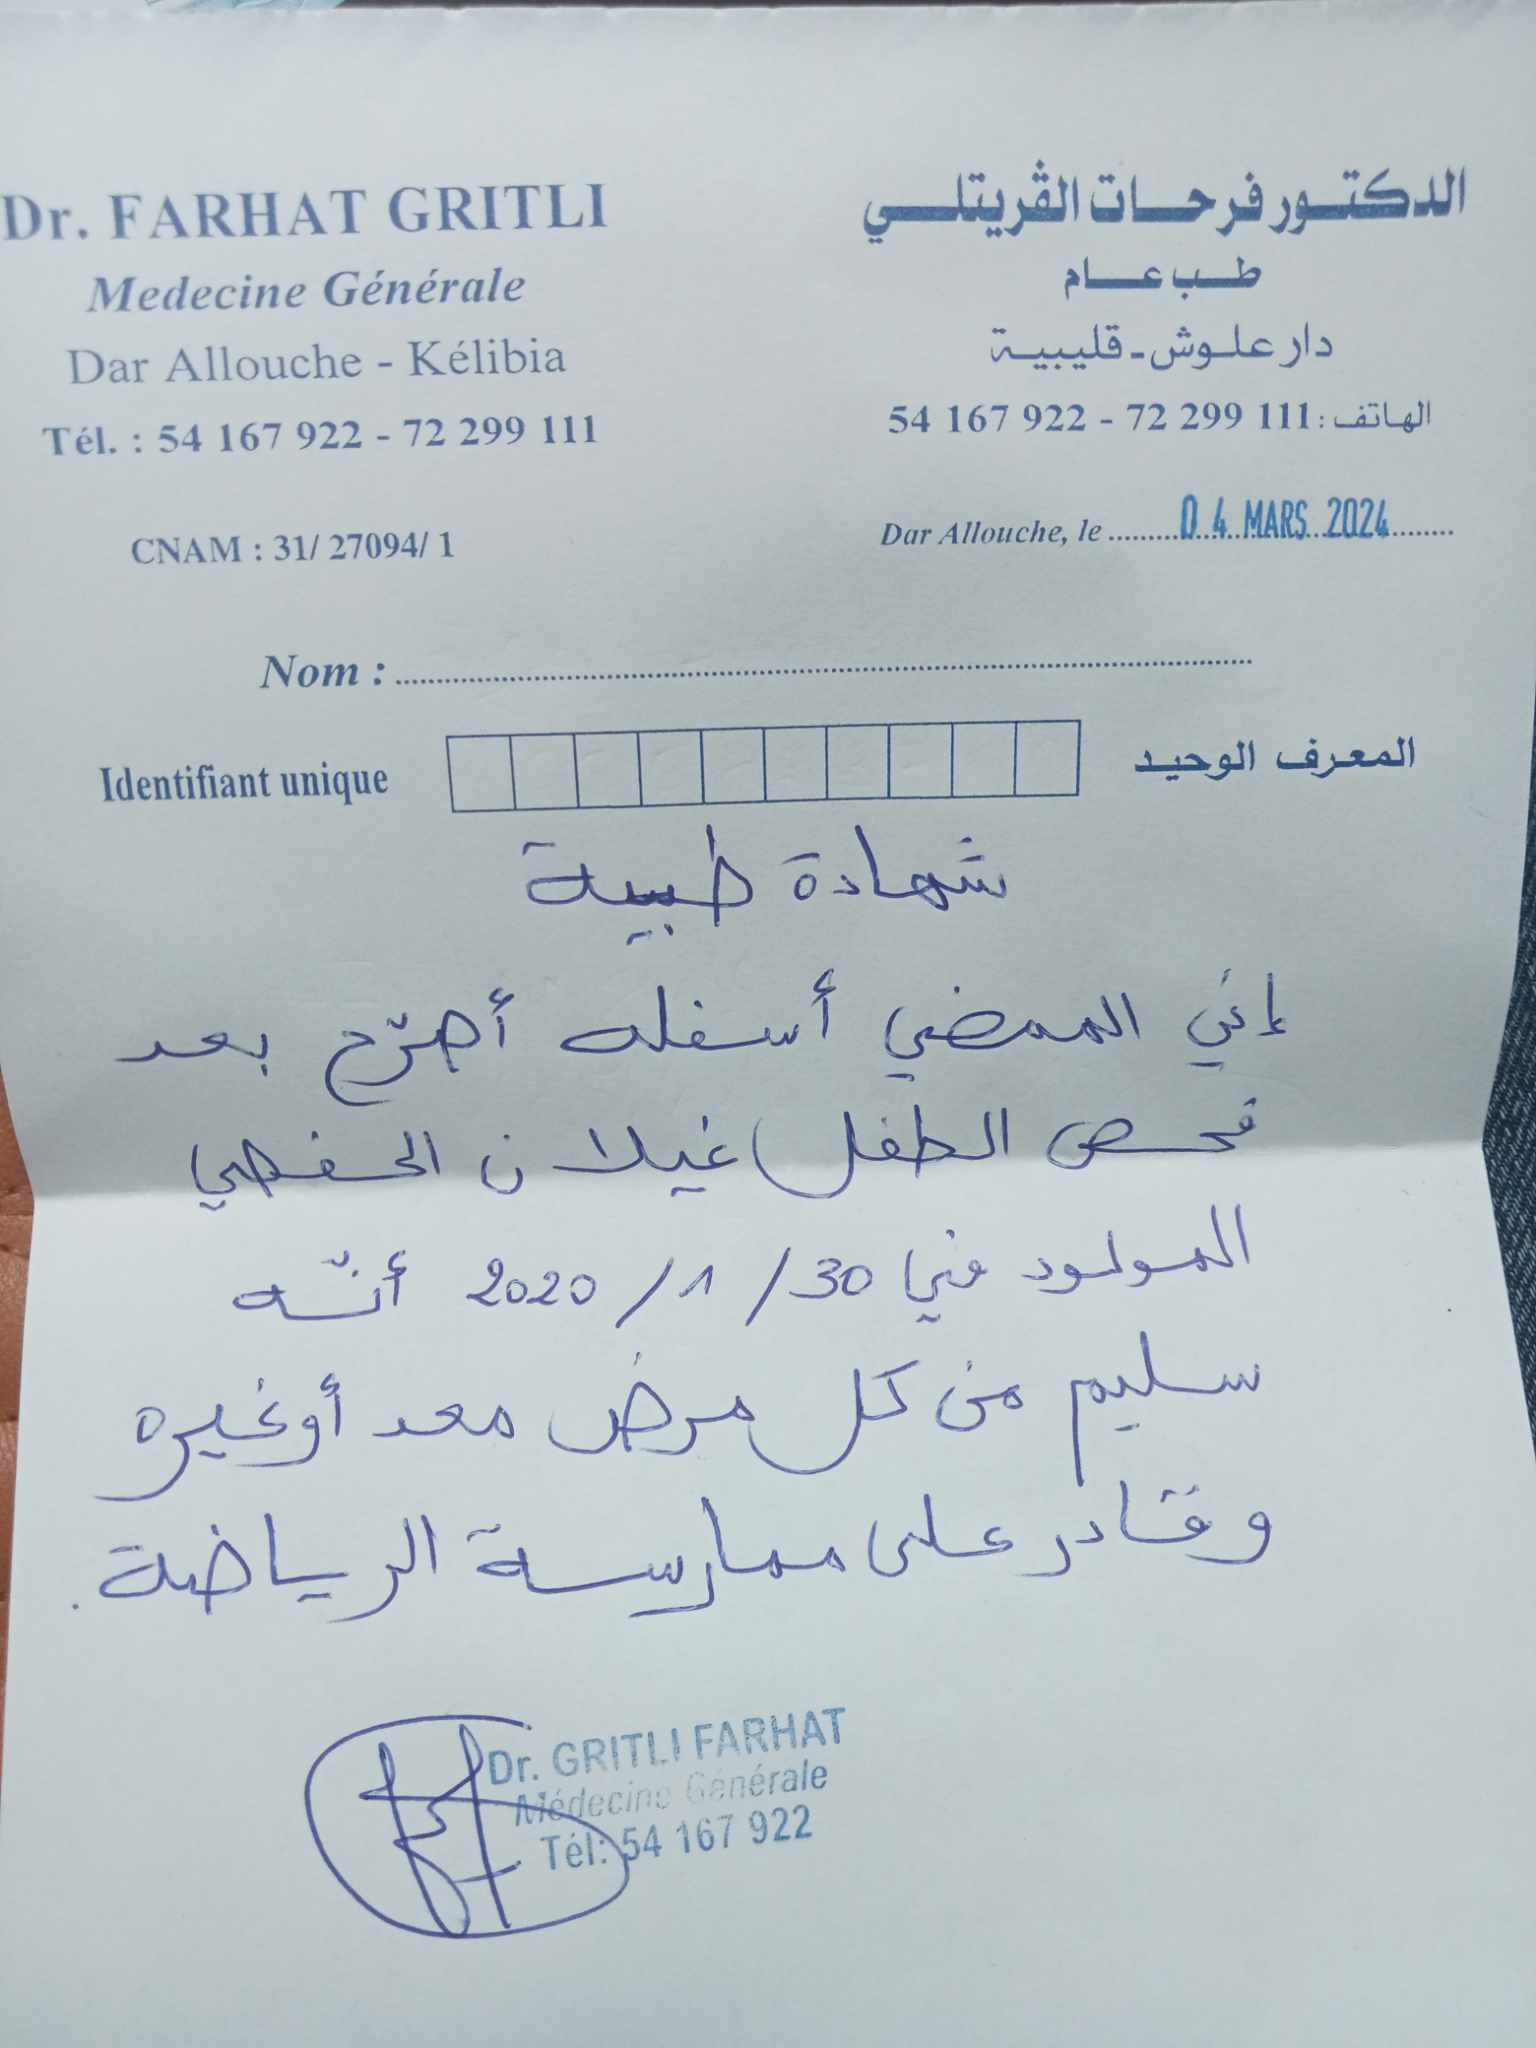 Dr. FARHAT GRITLI
Medecine Générale
Dar Allouche - Kélibia
Tél. : 54 167 922 - 72 299 111
CNAM : 31/ 27094/ 1
الدكتور فرحات الڤريتلي
طب عام
دار علوش - قليبية
الهاتف : 54 167 922 - 72 299 111
Dar Allouche, le 04 MARS 2024
Nom :
Identifiant unique المعرف الوحيد
شهادة طبية
إني الممضي أسفله أصرّح بعد
فحص الطفل غيلان الحفصي
المولود في 30/1/2020 أنّه
سليم من كل مرض معد أو غيره
وقادر على ممارسة الرياضة.
Dr. GRITLI FARHAT
Médecine Générale
Tél: 54 167 922